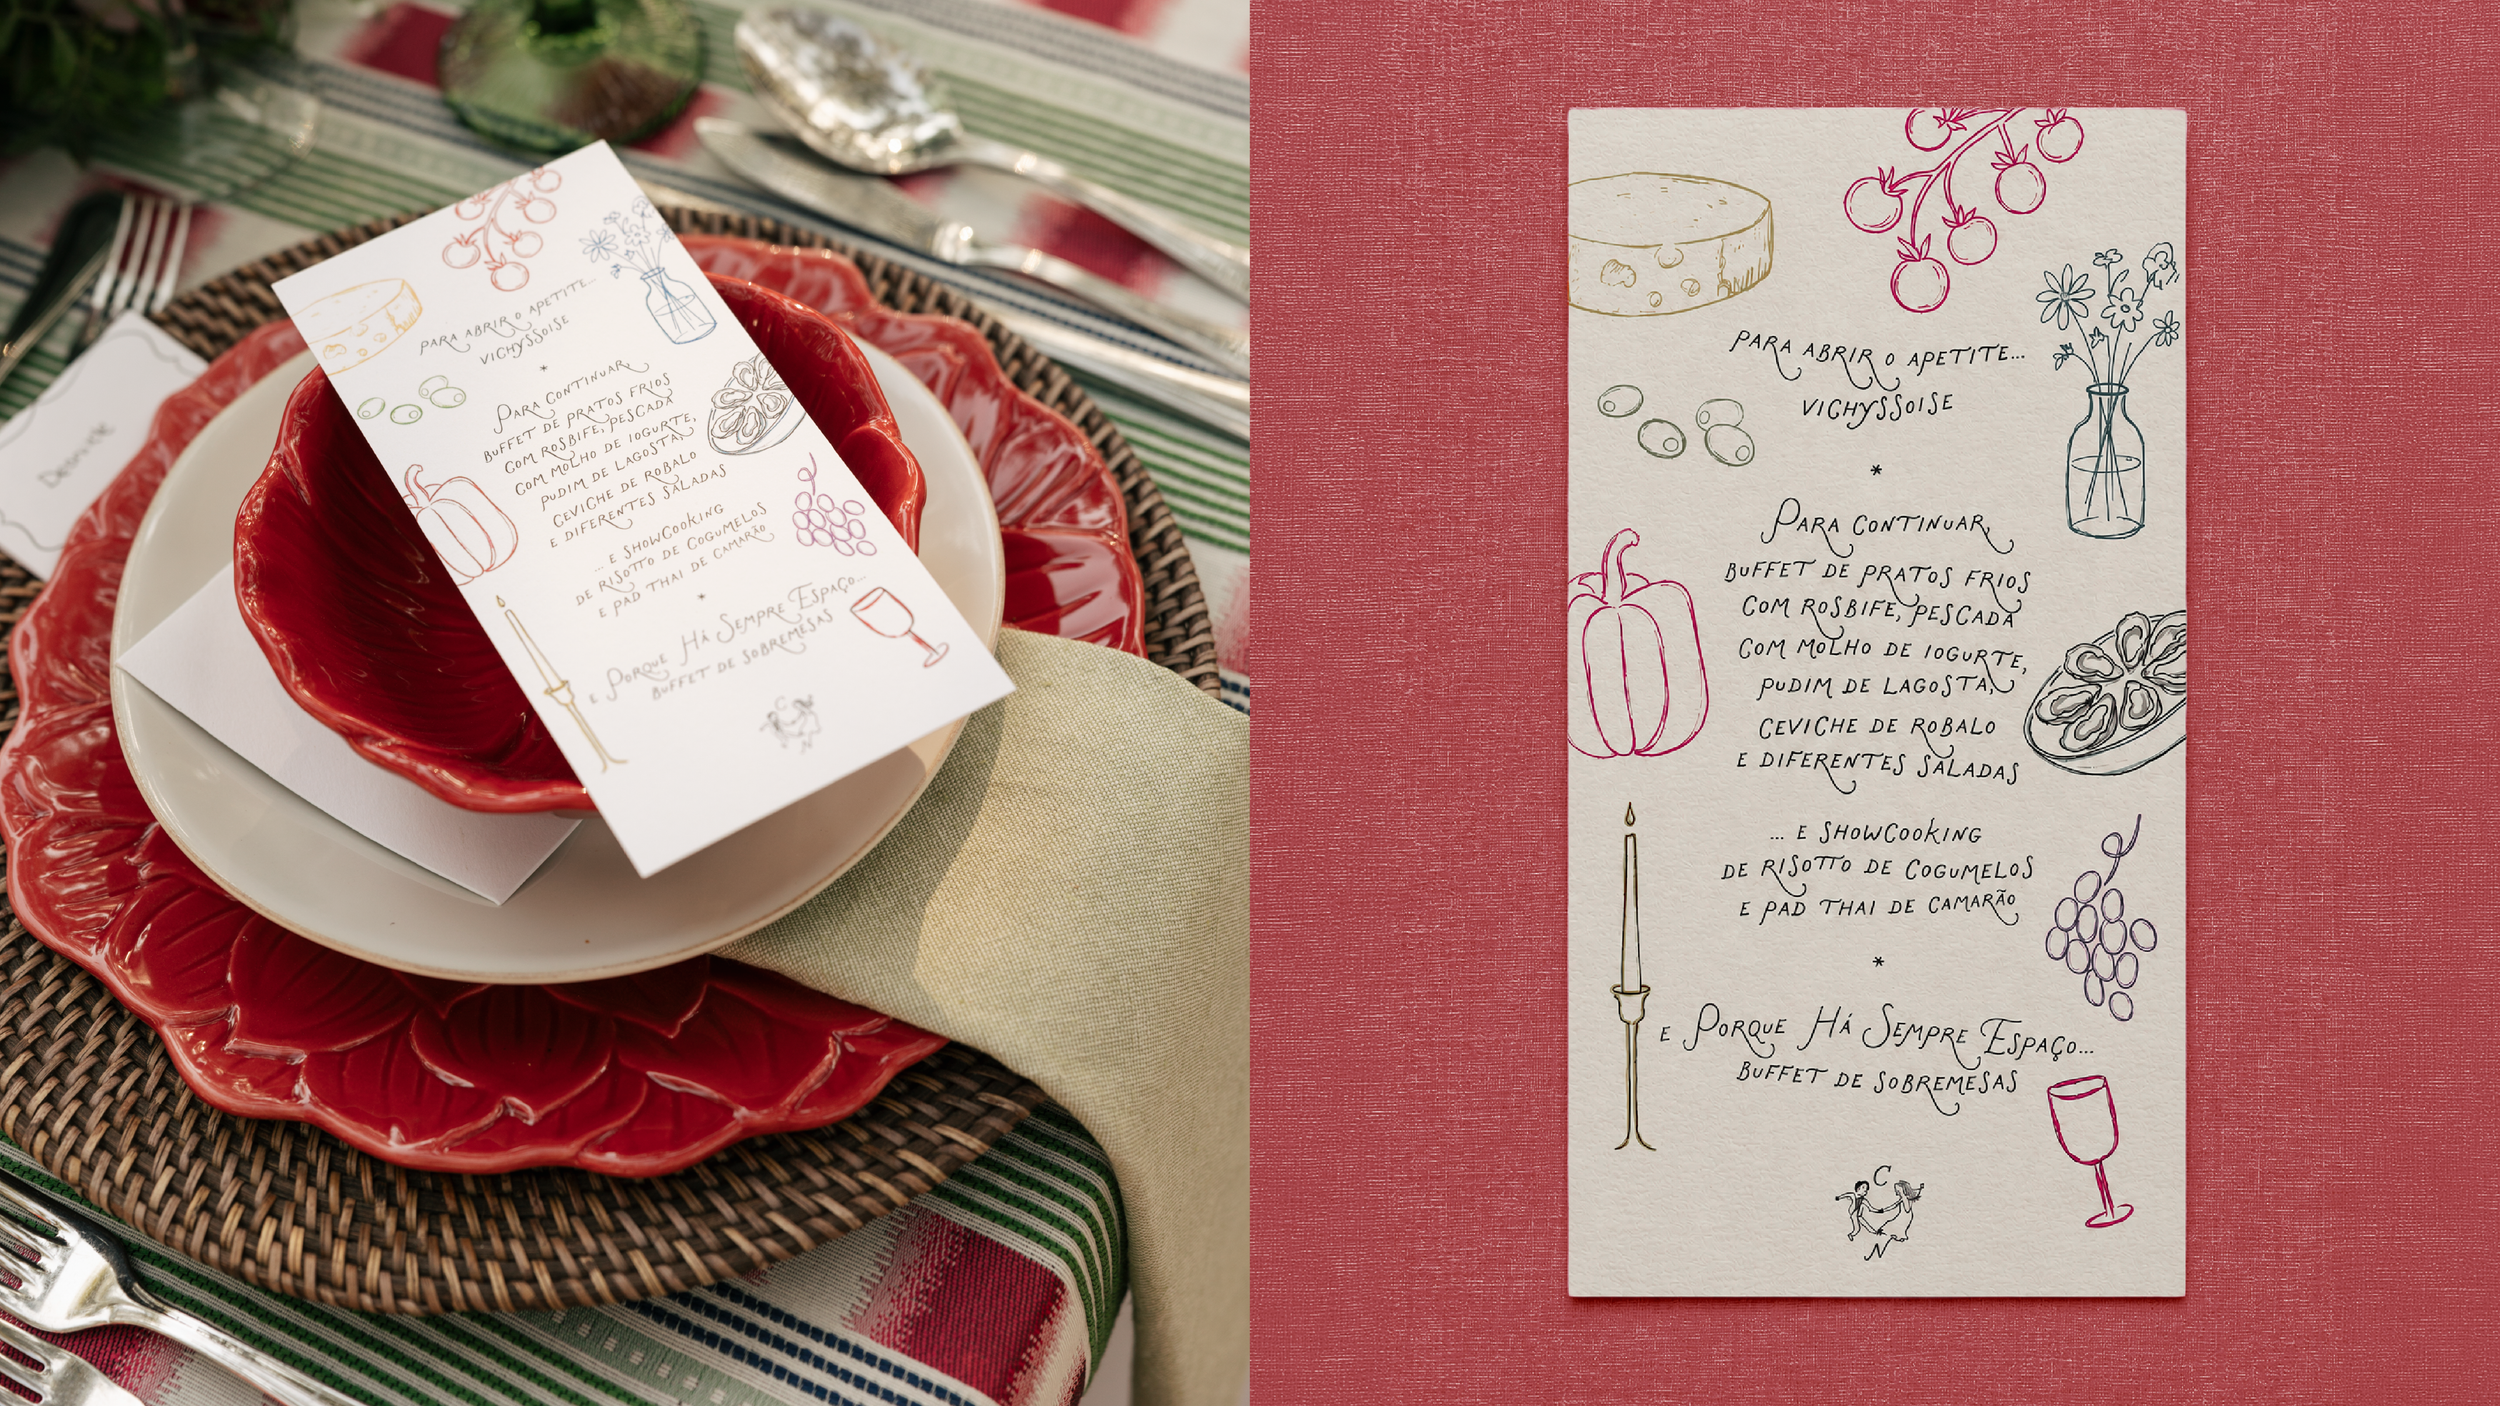 PARA ABRIR O APETITE...
VICHYSSOISE
*
PARA CONTINUAR,
BUFFET DE PRATOS FRIOS
COM ROSBIFE, PESCADA
COM MOLHO DE IOGURTE,
PUDIM DE LAGOSTA,
CEVICHE DE ROBALO
E DIFERENTES SALADAS
... E SHOWCOOKING
DE RISOTTO DE COGUMELOS
E PAD THAI DE CAMARÃO
*
E PORQUE HÁ SEMPRE ESPAÇO...
BUFFET DE SOBREMESAS
C
N
PARA ABRIR O APETITE...
VICHYSSOISE
*
PARA CONTINUAR,
BUFFET DE PRATOS FRIOS
COM ROSBIFE, PESCADA
COM MOLHO DE IOGURTE,
PUDIM DE LAGOSTA,
CEVICHE DE ROBALO
E DIFERENTES SALADAS
... E SHOWCOOKING
DE RISOTTO DE COGUMELOS
E PAD THAI DE CAMARÃO
*
E PORQUE HÁ SEMPRE ESPAÇO...
BUFFET DE SOBREMESAS
C
N